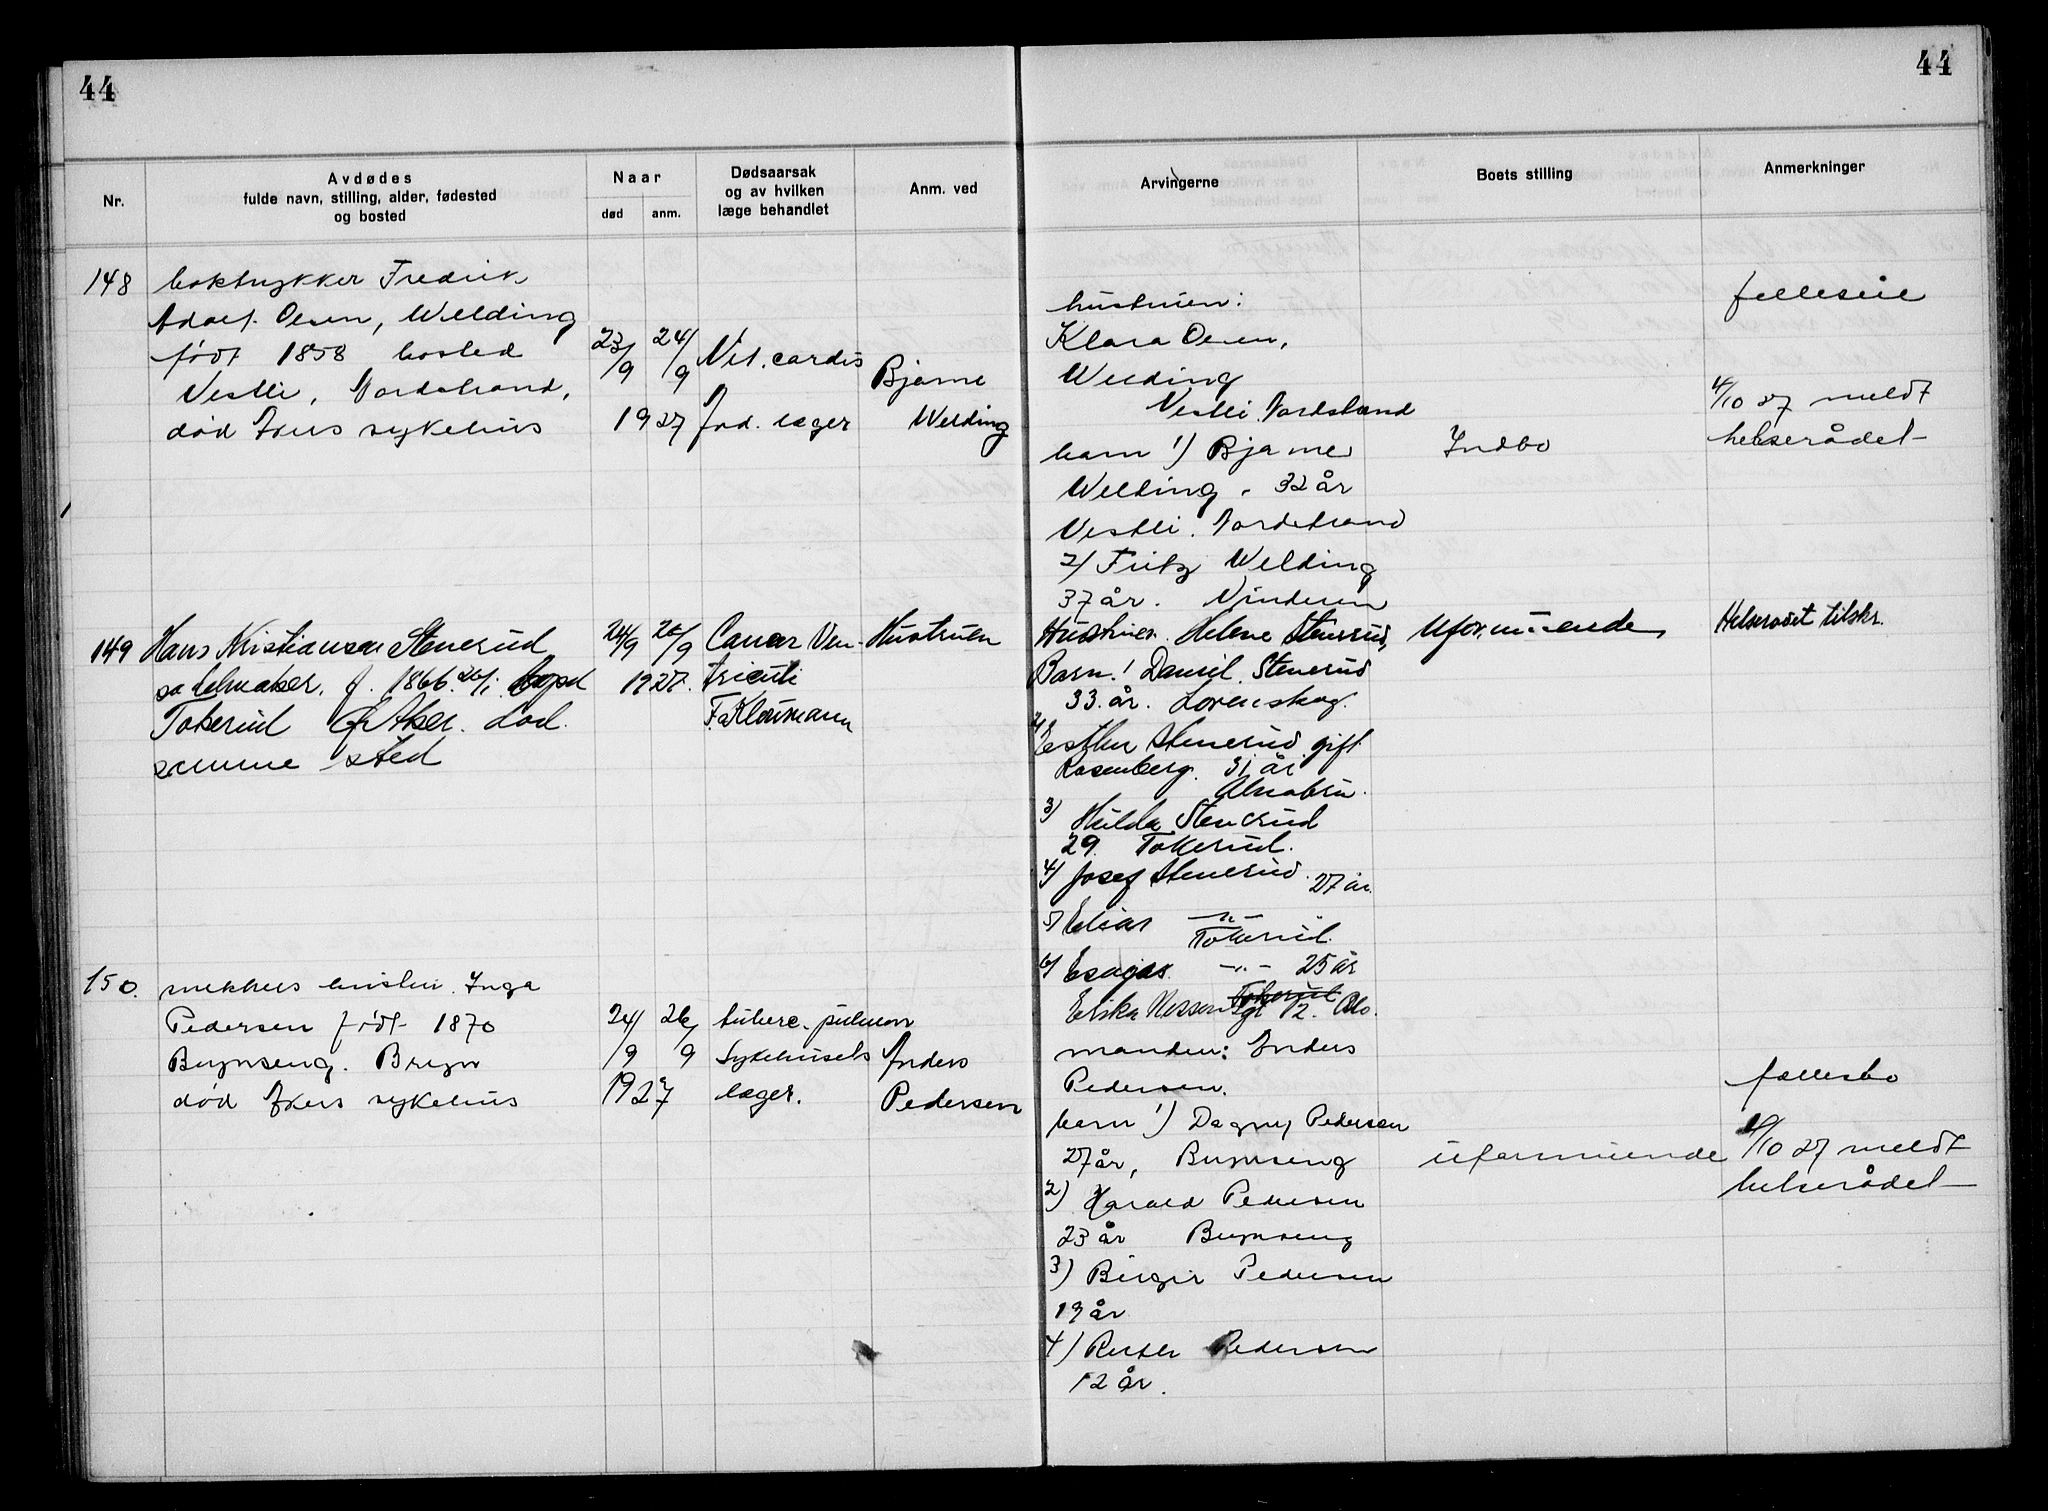 44
44
Nr.
Avdødes
fulde navn, stilling, alder, fødested
og bosted
Naar
død
anm.
Dødsaarsak
og av hvilken
læge behandlet
Anm. ved
Arvingerne
Boets stilling
Anmerkninger
148
boktrykker Fredrik
Adolf Olsen, Welding
født 1858 bosted
Vestli, Nordstrand,
død Akers sykehus
23/9 24/9
1927
Vit. cordis
læger
Bjarne
Welding
hustruen:
Klara Olsen,
Welding
Vestli Nordstrand
barn 1) Bjarne
Welding. 32 år
Vestli. Nordstrand
2) Fritz Welding
37 år. Vinderen
Indbo
felleseie
4/10 27 meldt
helserådet
149
Hans Kristiansen Stenerud
sadelmaker. f. 1866 26/1.
Tokerud Ø Aker. død
samme sted
24/9 26/9
1927.
Cancer Ven-
triculi
F. Klousmann
Hustruen
Hustruen. Helene Stenerud,
Barn. 1 Daniel. Stenerud
33. år. Lørenskog.
2) Esther Stenerud gift
Rosenberg. 31 år
Alnabru.
3) Hulda Stenerud
29. Tokerud.
4) Josef Stenerud. 27 år.
5) Elias -"-
Tokerud.
6) Esajas. -"- 25 år
Tokerud
Uformuende
Helserådet tilskr.
150.
snekkers hustru. Inga
Pedersen født 1870
Brynseng. Bryn
død Akers sykehus
24/9 26/9
1927
tuberc. pulmon
Sykehusets
læger.
Anders
Pedersen
manden: Anders
Pedersen.
barn 1) Dagny Pedersen
27 år, Brynseng
2) Harald Pedersen
23 år Brynseng
3) Birger Pedersen
19 år
4) Ruth Pedersen
12 år.
uformuende
fællesbo
4/10 27 meldt
helserådet